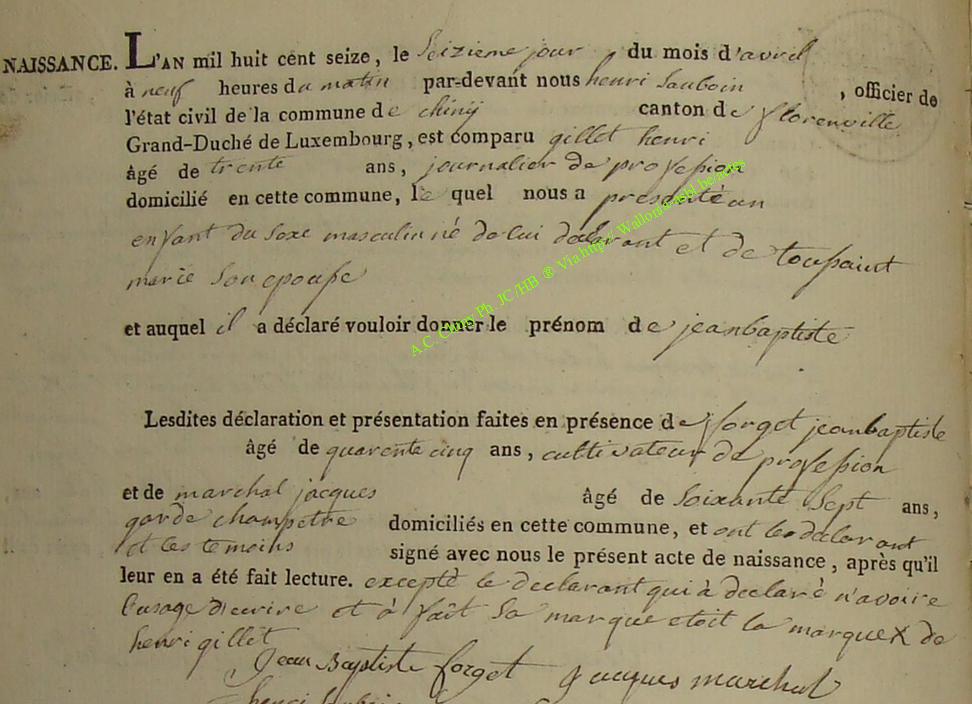 NAISSANCE. L'AN mil huit cent seize, le Seizieme jour, du mois d'avril
à neuf heures du matin par-devant nous henri Sauboin, officier de
l'état civil de la commune de chiny canton de florenville
Grand-Duché de Luxembourg, est comparu gillet henri
âgé de trente ans, journalier de profession
domicilié en cette commune, le quel nous a presenté un
enfant du sexe masculin né de lui déclarant et de toussaint
marie son epouse
et auquel il a déclaré vouloir donner le prénom de jeanbaptiste
Lesdites déclaration et présentation faites en présence de forget jeanbaptiste
âgé de quarente cinq ans, cultivateur de profession
et de marchal jacques âgé de soixante sept ans,
garde champetre domiciliés en cette commune, et ont le declarant
et les temoins signé avec nous le présent acte de naissance, après qu'il
leur en a été fait lecture. excepté le declarant qui à declaré n'avoire
l'usage d'ecrire et à fait sa marque etoit la marque X de
henri gillet
Jean Baptiste forget Jacques marchal
henri
A.C. Chiny Ph JC/HB ® Via http// Wallonia asbl.be/actes